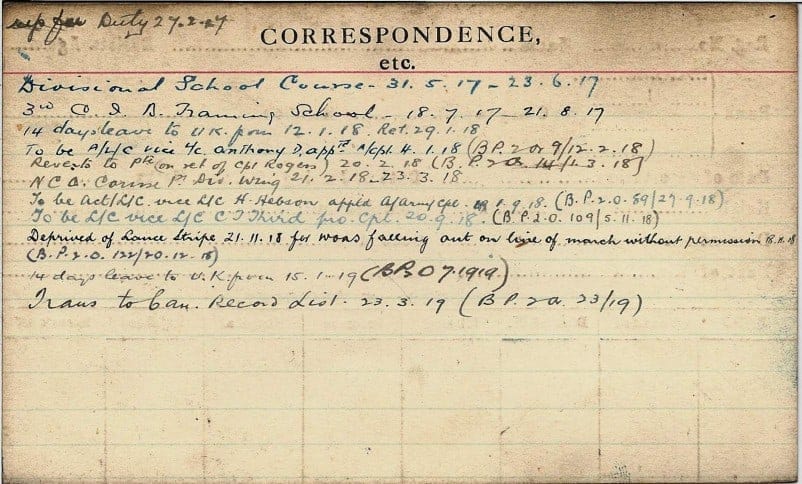 rep for Duty 27.2.17
CORRESPONDENCE,
etc.
Divisional School Course - 31.5.17 - 23.6.17
3rd C. I. B. Training School - 18.7.17 - 21.8.17
14 days leave to U.K. from 12.1.18. Ret. 29.1.18
To be A/L/C vice L/C. Anthony D, appted A/Cpl. 4.1.18 (B.P.2 or 9/12.2.18)
Reverts to Pte (on ret of Cpl Rogers) 20.2.18 (B.P.2.O. 14/1.3.18)
N C O. Course Pt Div. Wing 21.2.18 - 23.3.18
To be act/L/C. vice L/C H. Hebson app'd A/Cpl. 1.9.18. (B.P.2.O. 89/27.9.18)
To be L/C vice L/C C T Third pro. Cpl. 20.9.18. (B.P.2.O. 109/5.11.18)
Deprived of Lance Stripe 21.11.18 for woas falling out on line of march without permission 18.11.18
(B.P.2.O. 122/20.12.18)
14 days leave to U.K. from 15.1.19 (B.P.O 7.1919.)
Trans to Can. Record List. 23.3.19 (B.P.2.O. 23/19)